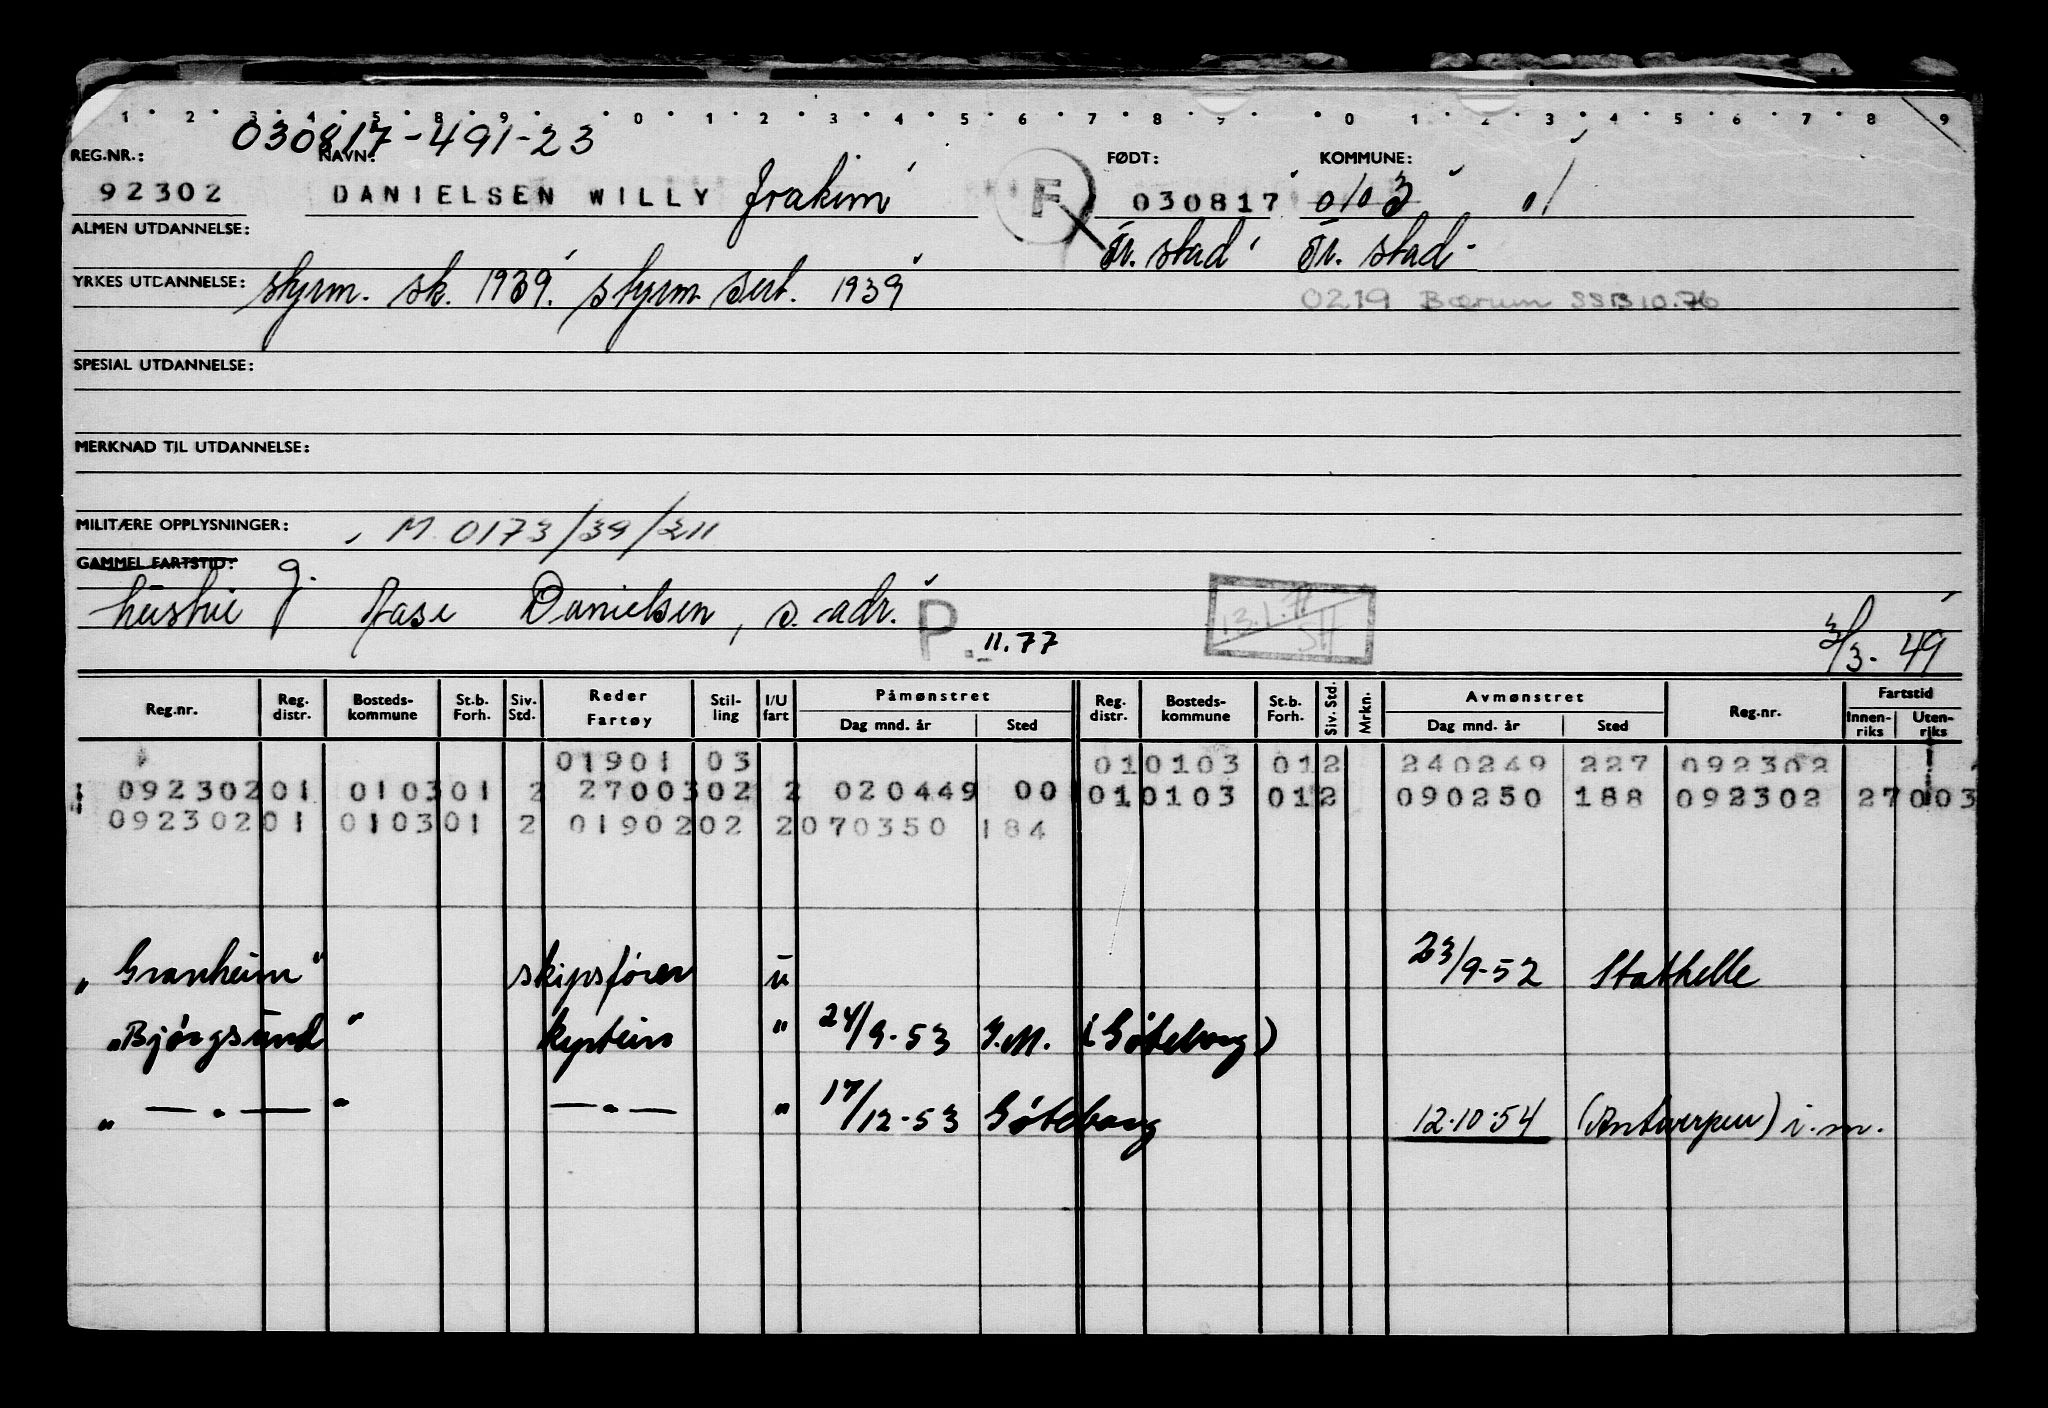 1 2 3 4 5 8 9 0 1 2 3 4 5 6 7 8 9 0 1 2 3 4 5 6 7 8 9
030817-491-23
REG.NR.: NAVN: FØDT: KOMMUNE:
92302 DANIELSEN WILLY Joakim F 030817 0103 01
ALMEN UTDANNELSE: Fr. stad Fr. stad
YRKES UTDANNELSE: styrm. sk. 1939. styrm sert. 1939
0219 Bærum SSB 10.76
SPESIAL UTDANNELSE:
MERKNAD TIL UTDANNELSE:
MILITÆRE OPPLYSNINGER: M 0173/39/211
GAMMEL FARTSTID: g.
hustru Aase Danielsen, s. adr. P. 11.77 13.1.77 SH 3/3-49
Reg.nr. Reg. distr. Bosteds-kommune St.b. Forh. Siv. Std. Reder Fartøy Stil-ling I/U fart Påmønstret Dag mnd. år Sted Reg. distr. Bosteds-kommune St.b. Forh. Siv. Std. Mrkn. Avmønstret Dag mnd. år Sted Reg.nr. Fartstid Innen-riks Uten-riks
01901 03 010103 012 240249 227 092302
092302 01 0103 01 2 27003 02 2 020449 00 010103 012 090250 188 092302 27003
092302 01 0103 01 2 01902 02 2 070350 184
"Granheim" skipsfører u 23/9-52 Stathelle
"Bjørgsund" kaptein " 24/9-53 I.M. (Göteborg)
" — . — " — . — " 17/12-53 Göteborg 12.10.54 (Antwerpen) i.m.